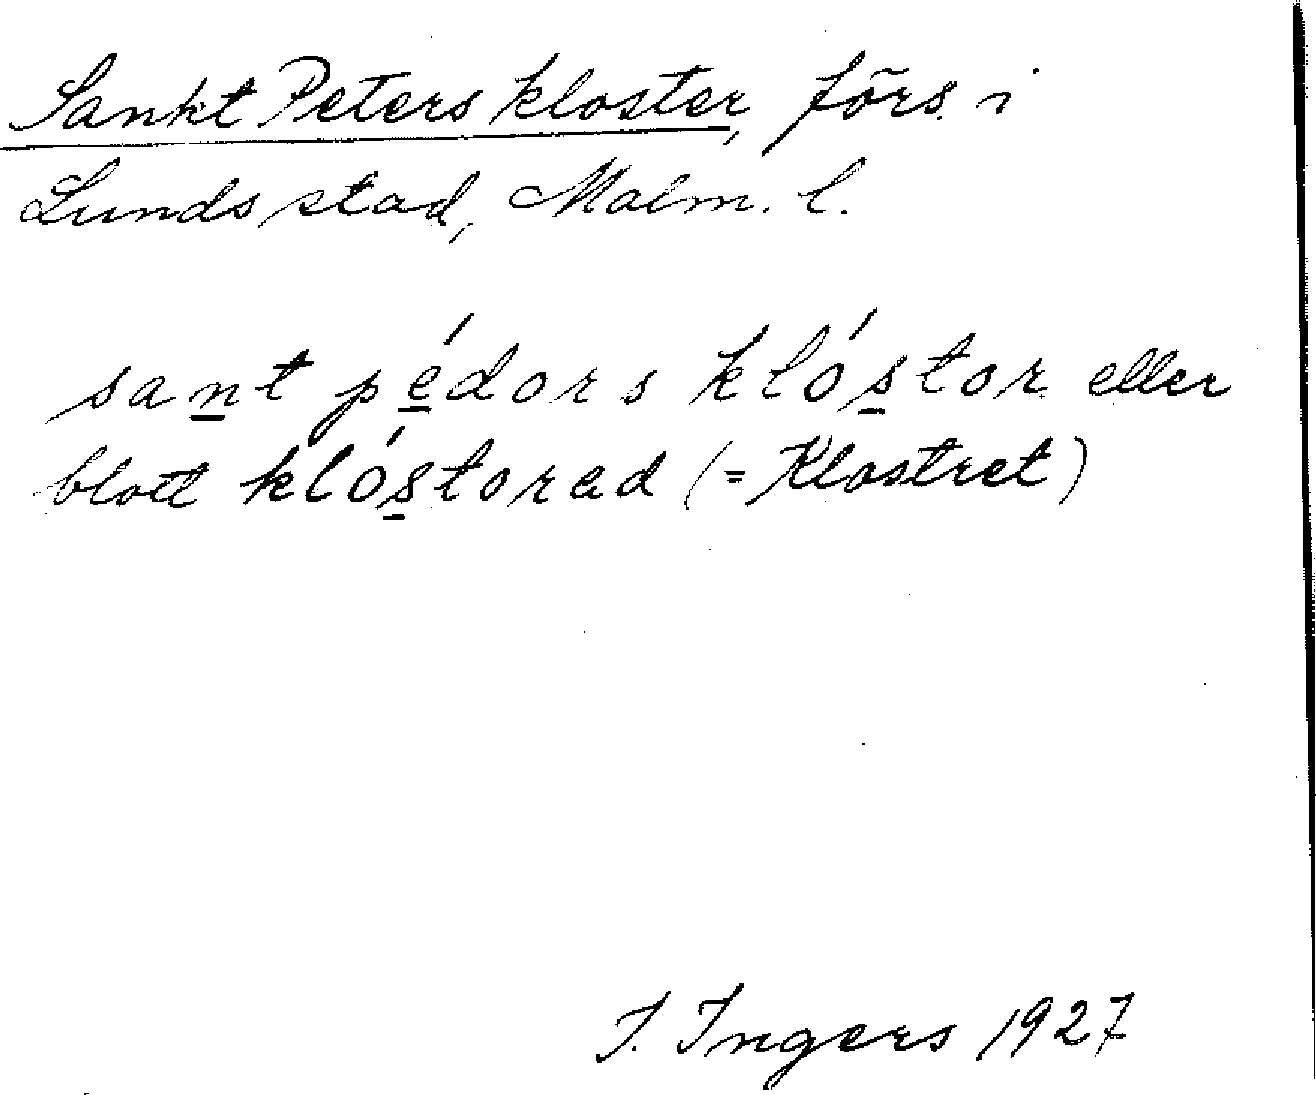 Sankt Peters kloster, förs. i
Lunds stad, Malm. l.
sant pédors klóstor eller
blott klóstorad (= Klostret)
I. Ingers 1927